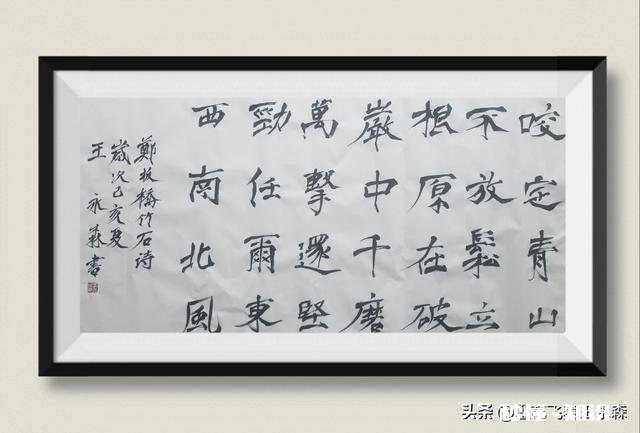 咬定青山
不放鬆立
根原在破
巖中千磨
萬擊還堅
勁任爾東
西南北風
鄭板橋竹石诗
歲次己亥夏
王永森書
头条